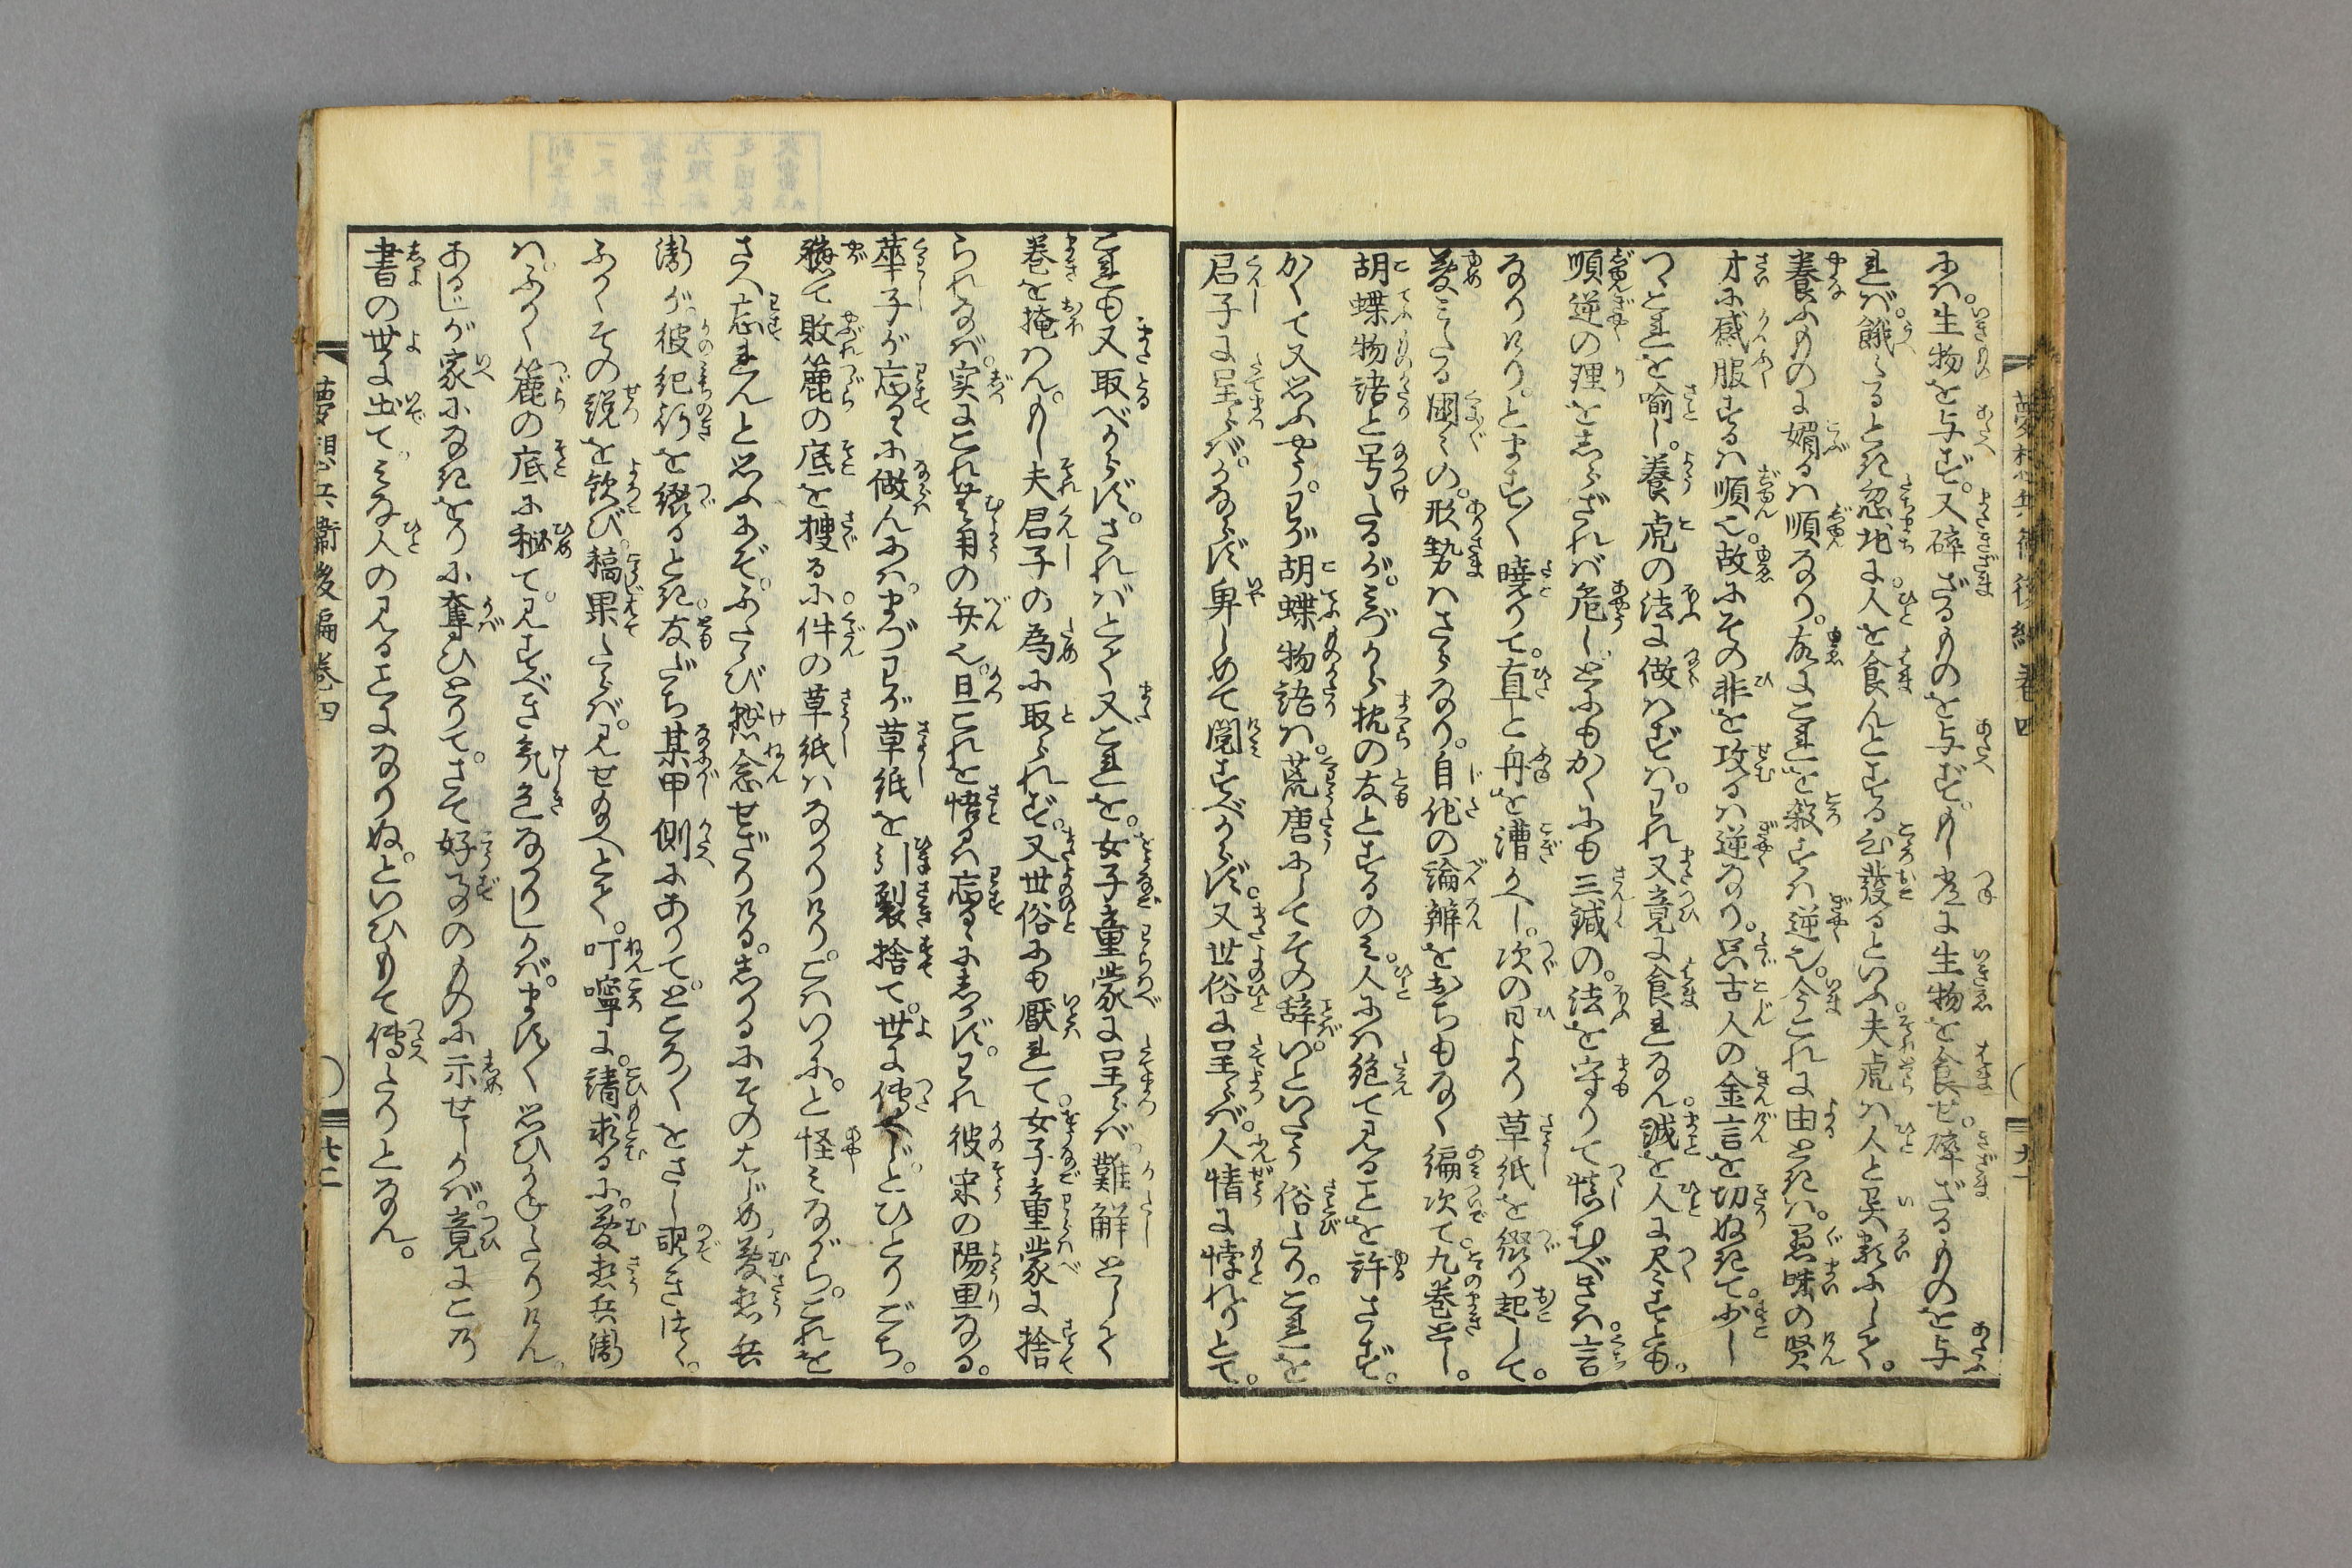 にハ生物を与ず。又砕ざるものを与ず。もし常に生物を食せ。砕ざるものを与
れバ。餓たるとき忽地に人を食んとする心発るといふ。夫虎ハ人と異類にして。
養ふものに媚るハ順なり。故にこれを殺すハ逆也。今これに由ときハ。愚昧の賢
才に感服するハ順也。故にその非を攻るハ逆なり。只古人の金言を切ぬきて。少し
つゝこれを喩し。養虎の法に做はずハ。われ又竟に食れなん。誠を人に尽すとも。
順逆の理をしらざれバ危し。とにもかくにも三緘の。法を守りて慎むべきハ。言
なりけり。とまうすく暁りて。直と舟を漕かへし。次の日より草紙を綴り起して。
夢ミたる国〻の。形勢ハさらなり。自他の論辨をおちもなく編次て。九巻とし。
胡蝶物語と号たるが。ミづから枕の友とするのミ。人にハ絶て見ることを許さず。
かくて又思ふやう。わが胡蝶物語ハ。荒唐にしてその辞。いといたう俗たり。これを
君子に呈らバ。かならず鄙しめて閲すべからず。又世俗に呈らバ。人情に悖れりとて。
これも又取べからず。さればとて又これを。女子童蒙に呈らバ。難解としも
巻を掩ハん。もし夫君子の為に取られず。又世俗にも厭れて。女子童蒙に捨
られなバ。実にこれ無用の弁也。且これを悟るハ忘るゝにしかず。われ彼宋の陽里なる。
華子が忘るゝに做んにハ。まづわが草紙を引裂捨て。世に傳へじ。とひとりごち。
頓て敗簏の底を捜るに。件の草紙ハなかりけり。こハいかに。と怪ミながら。これを
さへ忘れんと思ふにぞ。ふたゝび懸念せざりける。しかるにそのはじめ夢想兵
衛が。彼紀行を綴るとき。友だち某甲側にありて。ところ〳〵をさし覗きつゝ。
ふかくその説を歓び。稿果たらバ。見せ給へとて。叮嚀に。請求るに。夢想兵衛
ハ。ふかく簏の底に秘て。見すべき気色なかりしかバ。まうく思ひかねたりけん。
あるじが家になきをりに奪ひとりて。さて好事のものに示せしかバ。竟にこの
書の世に出て。ミな人の見ることになりぬ。といひもて傳へたりとなん。
夢想兵衛後編巻四
七二
夢想兵衛後編巻四